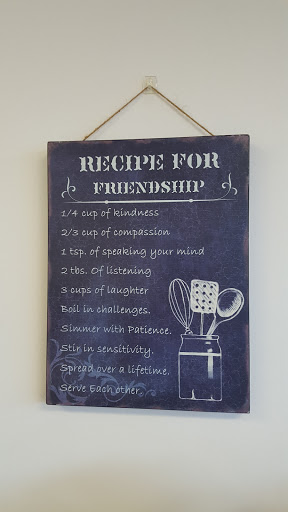 RECIPE FOR
FRIENDSHIP
1/4 cup of kindness
2/3 cup of compassion
1 tsp. of speaking your mind
2 tbs. Of listening
3 cups of laughter
Boil in challenges.
Simmer with Patience.
Stir in sensitivity.
Spread over a lifetime.
Serve Each other.